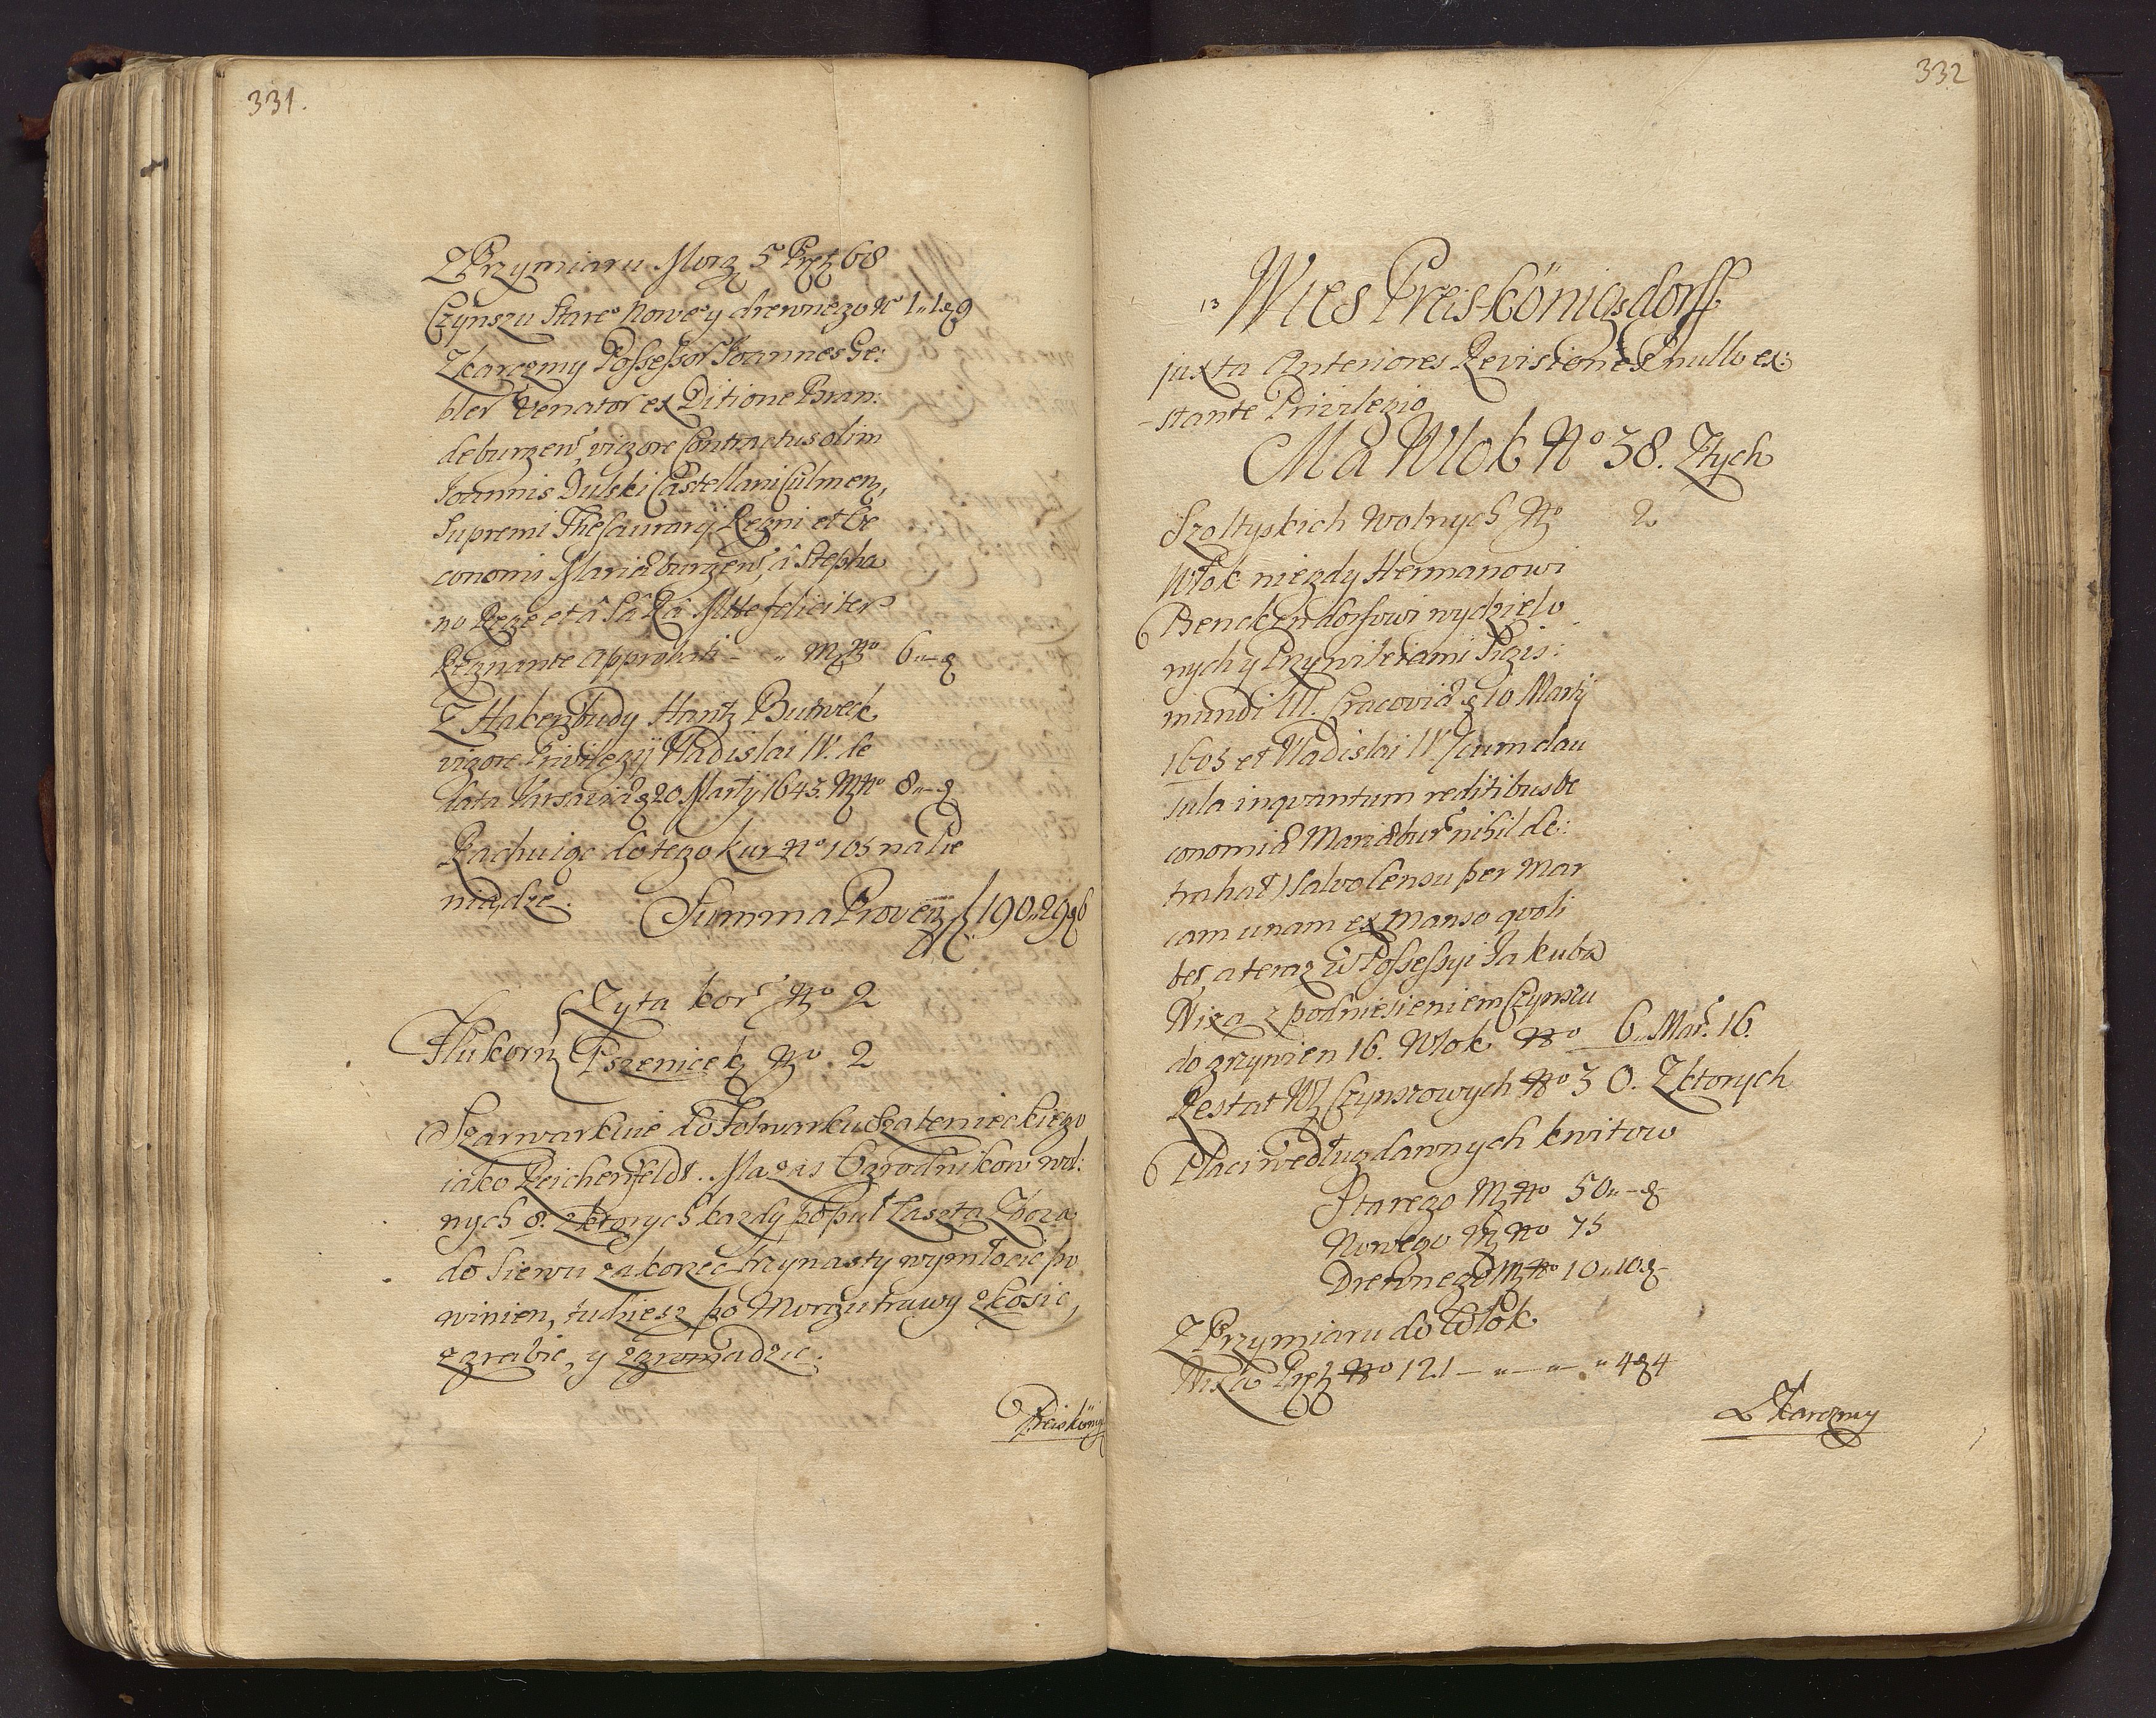 331.
Z Przymiaru Morg 5 Pręt 68
Czynszu Stare° Nowe° y drewnego N° 1„1 g 9
Z karczmy Possessor Joannes Ge:
bler Venator ex Ditione Bran:
deburgen, vigore Contractus olim
Joannis Dulski Castellani Culmen,
Supremi Thesaurarij Regni et Oe
conomi Mariæburgen, â Stepha
no Rege et â Sâ Râ Mtte feliciter
Regnante approbati - „ M N° 6„-g
Z Hakenbudy Hantz Butveck
vigore Privilegij Vladislai IV. de
data Varsaviæ 20 Martij 1645. M N° 8„-g
Rachuiąc do tego kur N° 105 na Pie
niądze. Summa Proven f 190„29 g 6
Flukorn Zyta kor N° 2
Pszenice k N° 2
Szarwarkuie do Folwarku Szatenieckiego
iako Reichenfeldt. Ma zas Ogrodnikow wol:
nych 8. z ktorych kazdy po puł Łaszta Zboza
do Siewu za korzec trzynasty wymłocic po
winien, tudziesz po Morgu trawy zkosic,
zgrabic, y zgromadzic.
Preiskönig
332
13 Wies Preiskönigsdorff
juxta Anteriores Revisiones nullo ex:
-stante Privilegio
Ma Włok N° 38. Z tych
Szoltyskich Wolnych N° 2
Włok niegdy Hermanowi
6 Benckendorfowi wydzielo
nych y Przywileiami Sigis:
mundi III. Cracoviæ 10 Martij
1605 et Vladislai IV. (cum clau
sula inqvantum reditibus Oe
conomiæ Mariæbur nihil de:
trahat) salvo Censu per Mar
cam unam ex manso qvoli
bet, a teraz w Possessyi Jakuba
Wixa z podniesieniem Czynszu
do grzywien 16. Włok N° 6„ Mar. 16.
Restat Wł Czynszowych N° 30. Z ktorych
6 Płaci według dawnych kwitow
Starego M N° 50„-g-
Nowego M N° 75
Drewnego M N° 10„10 g-
Z Przymiaru do Włok
Wixa Pręt N° 121 - „ - „ - „ 4 g 4
Z Karczmy